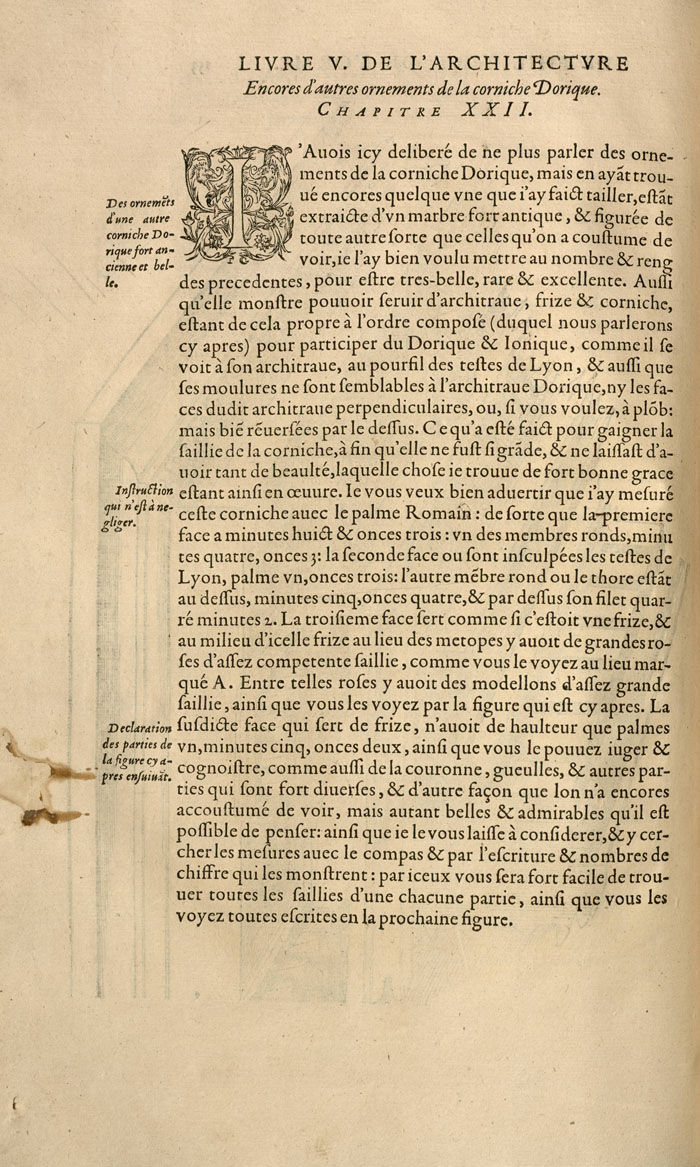 LIVRE V. DE L'ARCHITECTVRE
Encores d'autres ornements de la corniche Dorique.
CHAPITRE XXII.
I'Auois icy deliberé de ne plus parler des orne-
ments de la corniche Dorique, mais en ayãt trou-
ué encores quelque vne que i'ay faict tailler, eſtãt
extraicte d'vn marbre fort antique, & figurée de
toute autre ſorte que celles qu'on a couſtume de
voir, ie l'ay bien voulu mettre au nombre & reng
des precedentes, pour eſtre tres-belle, rare & excellente. Auſſi
qu'elle monſtre pouuoir ſeruir d'architraue, frize & corniche,
eſtant de cela propre à l'ordre compoſe (duquel nous parlerons
cy apres) pour participer du Dorique & Ionique, comme il ſe
voit à ſon architraue, au pourfil des teſtes de Lyon, & auſſi que
ſes moulures ne ſont ſemblables à l'architraue Dorique, ny les fa-
ces dudit architraue perpendiculaires, ou, ſi vous voulez, à plõb:
mais biẽ rẽuerſées par le deſſus. Ce qu'a eſté faict pour gaigner la
ſaillie de la corniche, à fin qu'elle ne fuſt ſi grãde, & ne laiſſaſt d'a-
uoir tant de beaulté, laquelle choſe ie trouue de fort bonne grace
eſtant ainſi en œuure. Ie vous veux bien aduertir que i'ay meſuré
ceſte corniche auec le palme Romain : de ſorte que la premiere
face a minutes huict & onces trois : vn des membres ronds, minu
tes quatre, onces 3: la ſeconde face ou ſont inſculpées les teſtes de
Lyon, palme vn, onces trois: l'autre mẽbre rond ou le thore eſtãt
au deſſus, minutes cinq, onces quatre, & par deſſus ſon filet quar-
ré minutes 2. La troiſieme face ſert comme ſi c'eſtoit vne frize, &
au milieu d'icelle frize au lieu des metopes y auoit de grandes ro-
ſes d'aſſez competente ſaillie, comme vous le voyez au lieu mar-
qué A. Entre telles roſes y auoit des modellons d'aſſez grande
ſaillie, ainſi que vous les voyez par la figure qui eſt cy apres. La
ſuſdicte face qui ſert de frize, n'auoit de haulteur que palmes
vn, minutes cinq, onces deux, ainſi que vous le pouuez iuger &
cognoiſtre, comme auſſi de la couronne, gueulles, & autres par-
ties qui ſont fort diuerſes, & d'autre façon que lon n'a encores
accouſtumé de voir, mais autant belles & admirables qu'il eſt
poſſible de penſer: ainſi que ie le vous laiſſe à conſiderer, & y cer-
cher les meſures auec le compas & par l'eſcriture & nombres de
chiffre qui les monſtrent : par iceux vous ſera fort facile de trou-
uer toutes les ſaillies d'une chacune partie, ainſi que vous les
voyez toutes eſcrites en la prochaine figure.
Des ornemẽts
d'une autre
corniche Do-
rique fort an-
cienne et bel-
le.
Inſtruction
qui n'eſt à ne-
gliger.
Declaration
des parties de
la figure cy a-
pres enſuiuãt.